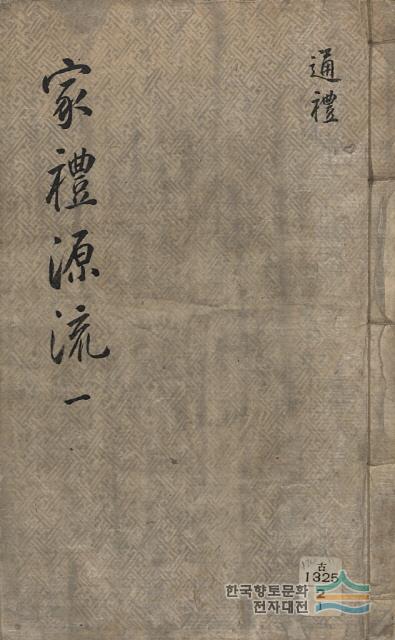 通禮
家禮源流 一
古
1325
2
1
한국향토문화
전자대전